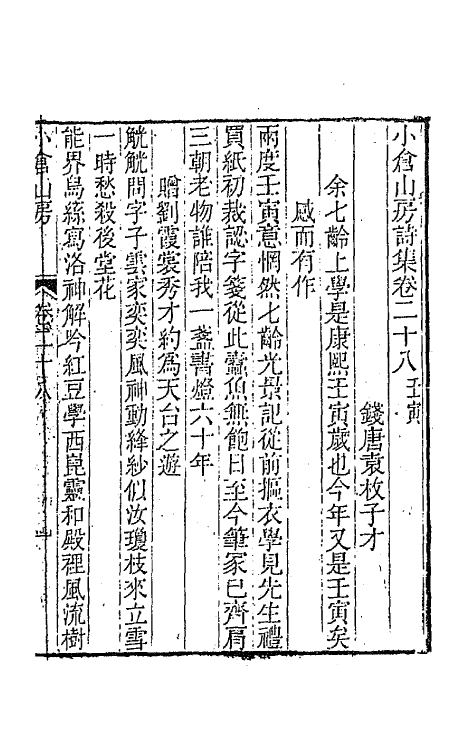 小倉山房詩集卷二十八壬寅
錢唐袁枚子才
余七齡上學是康熙壬寅歲也今年又是壬寅矣
感而有作
兩度壬寅意惘然七齡光景記從前摳衣學見先生禮
買紙初裁認字箋從此蠹魚無飽日至今筆冢已齊肩
三朝老物誰陪我一盞書燈六十年
贈劉霞裳秀才約為天台之遊
觥觥問字子雲家奕奕風神動絳紗似汝瓊枝來立雪
一時愁殺後堂花
能界烏絲寫洛神解吟紅豆學西崑靈和殿裡風流樹
小倉山房
卷二十八
一